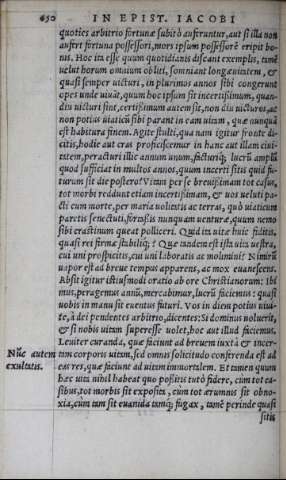 650 IN EPIST. IACOBI
quoties arbitrio fortunæ subitò auferuntur, aut si illa non
aufert fortuna possessori, mors ipsum possessorē eripit bo-
nis. Hoc ita esse quum quotidianis discant exemplis, tamē
uelut horum omnium obliti, somniant longæuitatem, &
quasi semper uicturi, in plurimos annos sibi congerunt
opes unde uiuāt, quum hoc ipsum sit incertissimum, quan-
diu uicturi sint, certissimum autem sit, non diu uicturos, ac
non potius uiaticū sibi parant in eam uitam, quæ nunquā
est habitura finem. Agite stulti, qua nam igitur fronte di-
citis, hodie aut cras proficiscemur in hanc aut illam ciui-
tatem, peracturi illic annum unum, facturiq; lucrū amplū
quod sufficiat in multos annos, quum incerti sitis quid fu-
turum sit die postero? Vitam per se breuissimam tot casus,
tot morbi reddunt etiam incertissimam, & uos ueluti pa-
cti cum morte, per maria uolitatis ac terras, quò uiaticum
paretis senectuti, forsassis nunquam venturæ, quum nemo
sibi crastinum queat polliceri. Quid ita uitæ huic fiditis,
quasi rei firmæ stabiliq;? Quæ tandem est ista uita uestra,
cui uni prospicitis, cui uni laboratis ac molimini? Nimirū
uapor est ad breue tempus apparens, ac mox euanescens.
Absit igitur istiusmodi oratio ab ore Christianorum: Ibi
mus, peragemus annū, mercabimur, lucrū faciemus: quasi
uobis in manu sit euentus futuri. Vos in diem potius uiui-
te, à dei pendentes arbitrio, dicentes: Si dominus uoluerit,
& si nobis uitam superesse uolet, hoc aut illud faciemus.
Leuiter curanda, quæ faciunt ad breuem iuxtà & incer-
Nūc autem tam corporis uitam, sed omnis solicitudo conferenda est ad
exultatis. eas res, quæ faciunt ad uitam immortalem. Et tamen quum
hæc uita nihil habeat quo possitis tutò fidere, cùm tot ca-
sibus, tot morbis sit exposita, cùm tot ærumnis sit obno-
xia, cùm tam sit euanida tamq; fugax, tamē perinde quasi
sitis